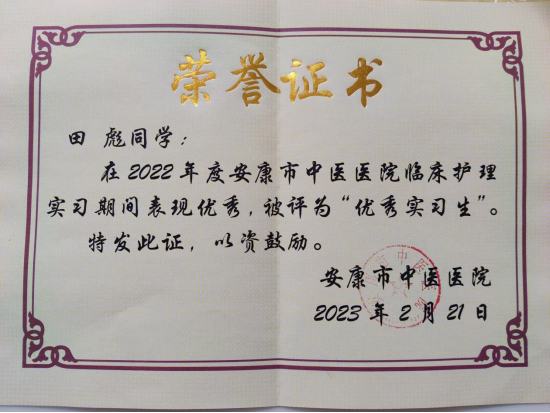 荣誉证书
田 彪同学:
在2022年度安康市中医医院临床护理
实习期间表现优秀,被评为“优秀实习生”。
特发此证,以资鼓励。
安康市中医医院
2023年2月21日